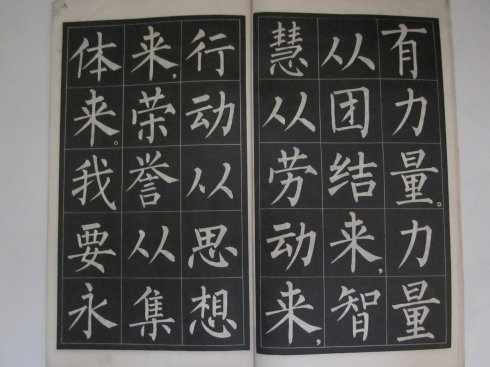 有力量。力量
从团结来,智
慧从劳动来,
行动从思想
来,荣誉从集
体来。我要永